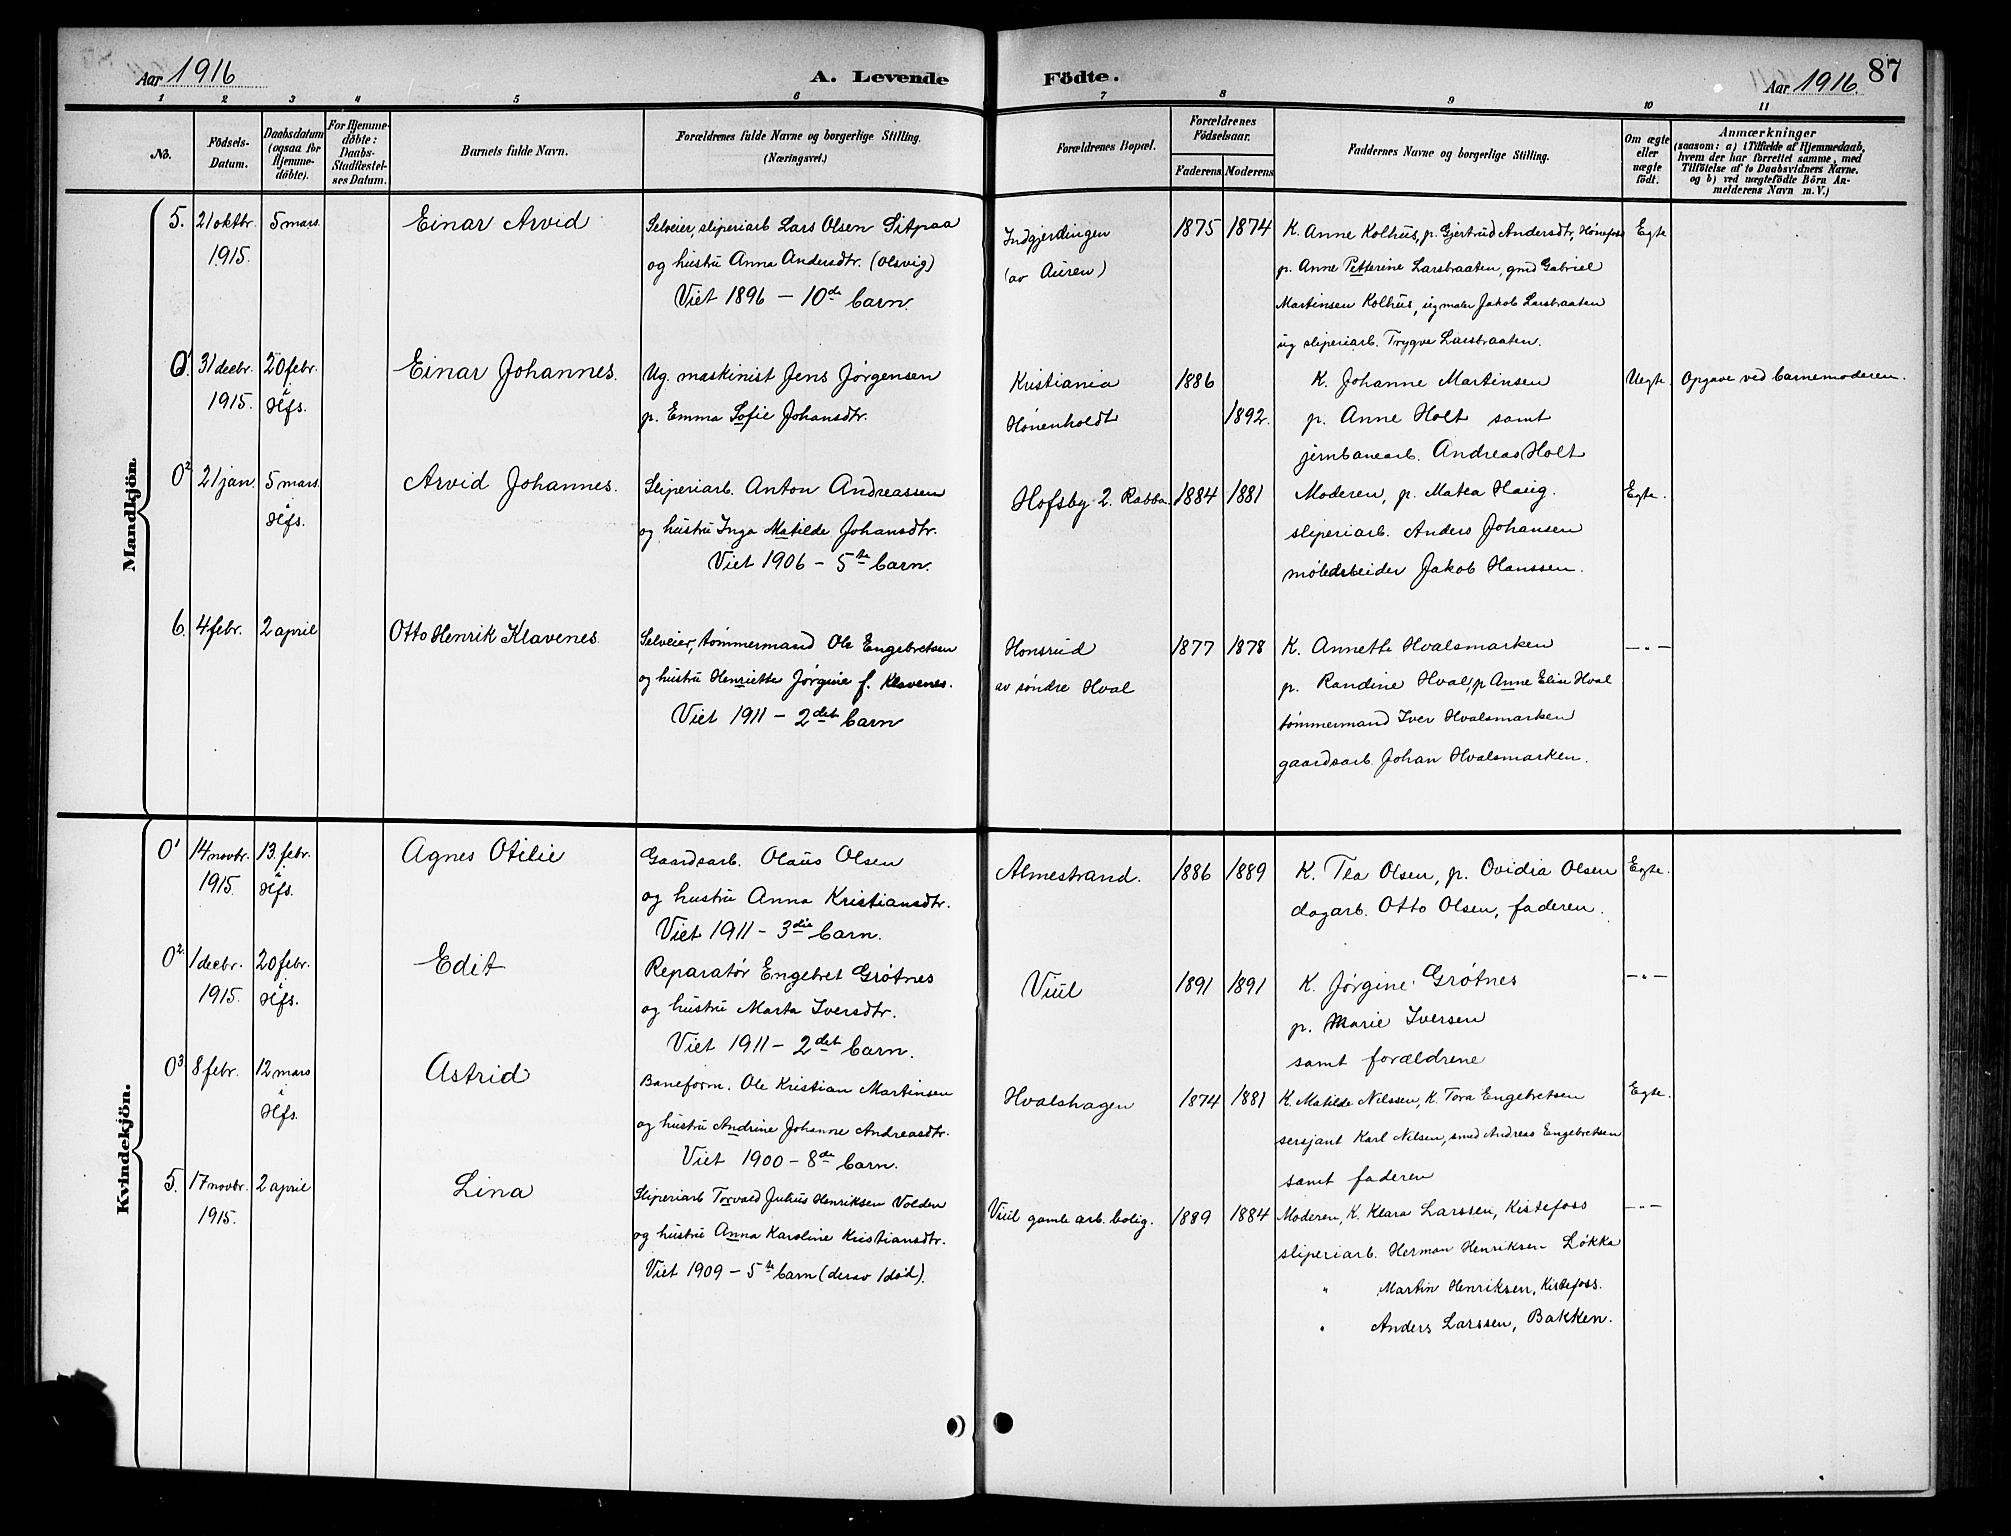 Aar 1916
A. Levende
Födte.
Aar 1916.
87
1 2 3 4 5 6 7 8 9 10 11
No.
Födsels-
Datum.
Daabsdatum
(ogsaa for
Hjemme-
döbte).
For Hjemme-
döbte:
Daabs-
Stadfæstel-
ses Datum.
Barnets fulde Navn.
Forældrenes fulde Navne og borgerlige Stilling.
(Næringsvei.)
Forældrenes Bopæl.
Forældrenes
Födselsaar.
Faderens Moderens
Faddernes Navne og borgerlige Stilling.
Om ægte
eller
uægte
födt.
Anmærkninger
(saasom: a) i Tilfælde af Hjemmedaab,
hvem der har forrettet samme, med
Tilföielse af to Daabsvidners Navne.
og b) ved uægtefödte Börn An-
melderens Navn m. V.)
Mandkjön.
5. 21 oktbr.
1915.
5 mars.
Einar Arvid
Selveier, sliperiarb Lars Olsen Sitpaa
og hustru Anna Andersdtr. (Olsvig)
Viet 1896 - 10de barn.
Indgjerdingen
(av Auren)
1875 1874
K. Anne Kolhus, p. Gjertrud Andersdtr, Hønefoss
p. Anne Petterine Larsbraaten, gmd Gabriel
Martinsen Kolhus, ug maler Jakob Larsbraaten
ug sliperiarb. Trygve Larsbraaten.
Egte
01. 31 decbr.
1915.
20 febr.
i
Hfs.
Einar Johannes.
Ug. maskinist Jens Jørgensen
p. Emma Sofie Johansdtr.
Kristiania
Hønenholdt
1886
1892.
K. Johanne Martinsen
p. Anne Holt samt
jernbanearb. Andreas Holt
Uegte.
Opgave ved barnemoderen.
02 21 jan.
5 mars.
i
Hfs.
Arvid Johannes.
Sliperiarb. Anton Andreassen
og hustru Inga Matilde Johansdtr.
Viet 1906 - 5te barn.
Hofsby 2. Rabba
1884 1881
Moderen, p. Matea Haug.
sliperiarb. Anders Johansen
møbelarbeider Jakob Hanssen.
Egte.
6. 4 febr.
2 april
Otto Henrik Klavenes.
Selveier, tømmermand Ole Engebretsen
og hustru Henriette Jørgine f. Klavenes.
Viet 1911 - 2det barn
Honsrud
av søndre Hval
1877 1878
K. Annette Hvalsmarken
p. Randine Hval, p Anne Elise Hval
tømmermand Iver Hvalsmarken
gaardsarb. Johan Hvalsmarken.
—„—
Kvindekjön.
01 14 novbr.
1915.
13. febr.
i
Hfs.
Agnes Otilie
Gaardsarb. Olaus Olsen
og hustru Anna Kristiansdtr.
Viet 1911 - 3die barn.
Almestrand.
1886 1889
K. Tea Olsen, p. Ovidia Olsen
dagarb. Otto Olsen, faderen.
Egte.
02. 1 decbr.
1915.
20 febr.
i
Hfs.
Edit
Reparatør Engebret Grøtnes
og hustru Marta Iversdtr.
Viet 1911 - 2det barn.
Viul
1891 1891
K. Jørgine Grøtnes
p. Marie Iversen
samt forældrene
—„—
03 8 febr.
12 mars
i
Hfs.
Astrid
Baneform. Ole Kristian Martinsen
og hustru Andrine Johanne Andreasdtr.
Viet 1900 - 8de barn.
Hvalshagen
1874 1881
K. Matilde Nilssen, K. Tora Engebretsen
sersjant Karl Nilsen, smed Andreas Engebretsen
samt faderen
Egte.
5. 17 novbr.
1915.
2 april
Lina
Sliperiarb Torvald Julius Henriksen Volden
og hustru Anna Karoline Kristiansdtr.
Viet 1909 - 5te barn (derav 1 død).
Viul gamle arb. bolig.
1889 1884
Moderen, K. Klara Larssen, Kistefoss
sliperiarb. Herman Henriksen Løkka
„ Martin Henriksen, Kistefoss.
„ Anders Larssen, Bakken.
—„—